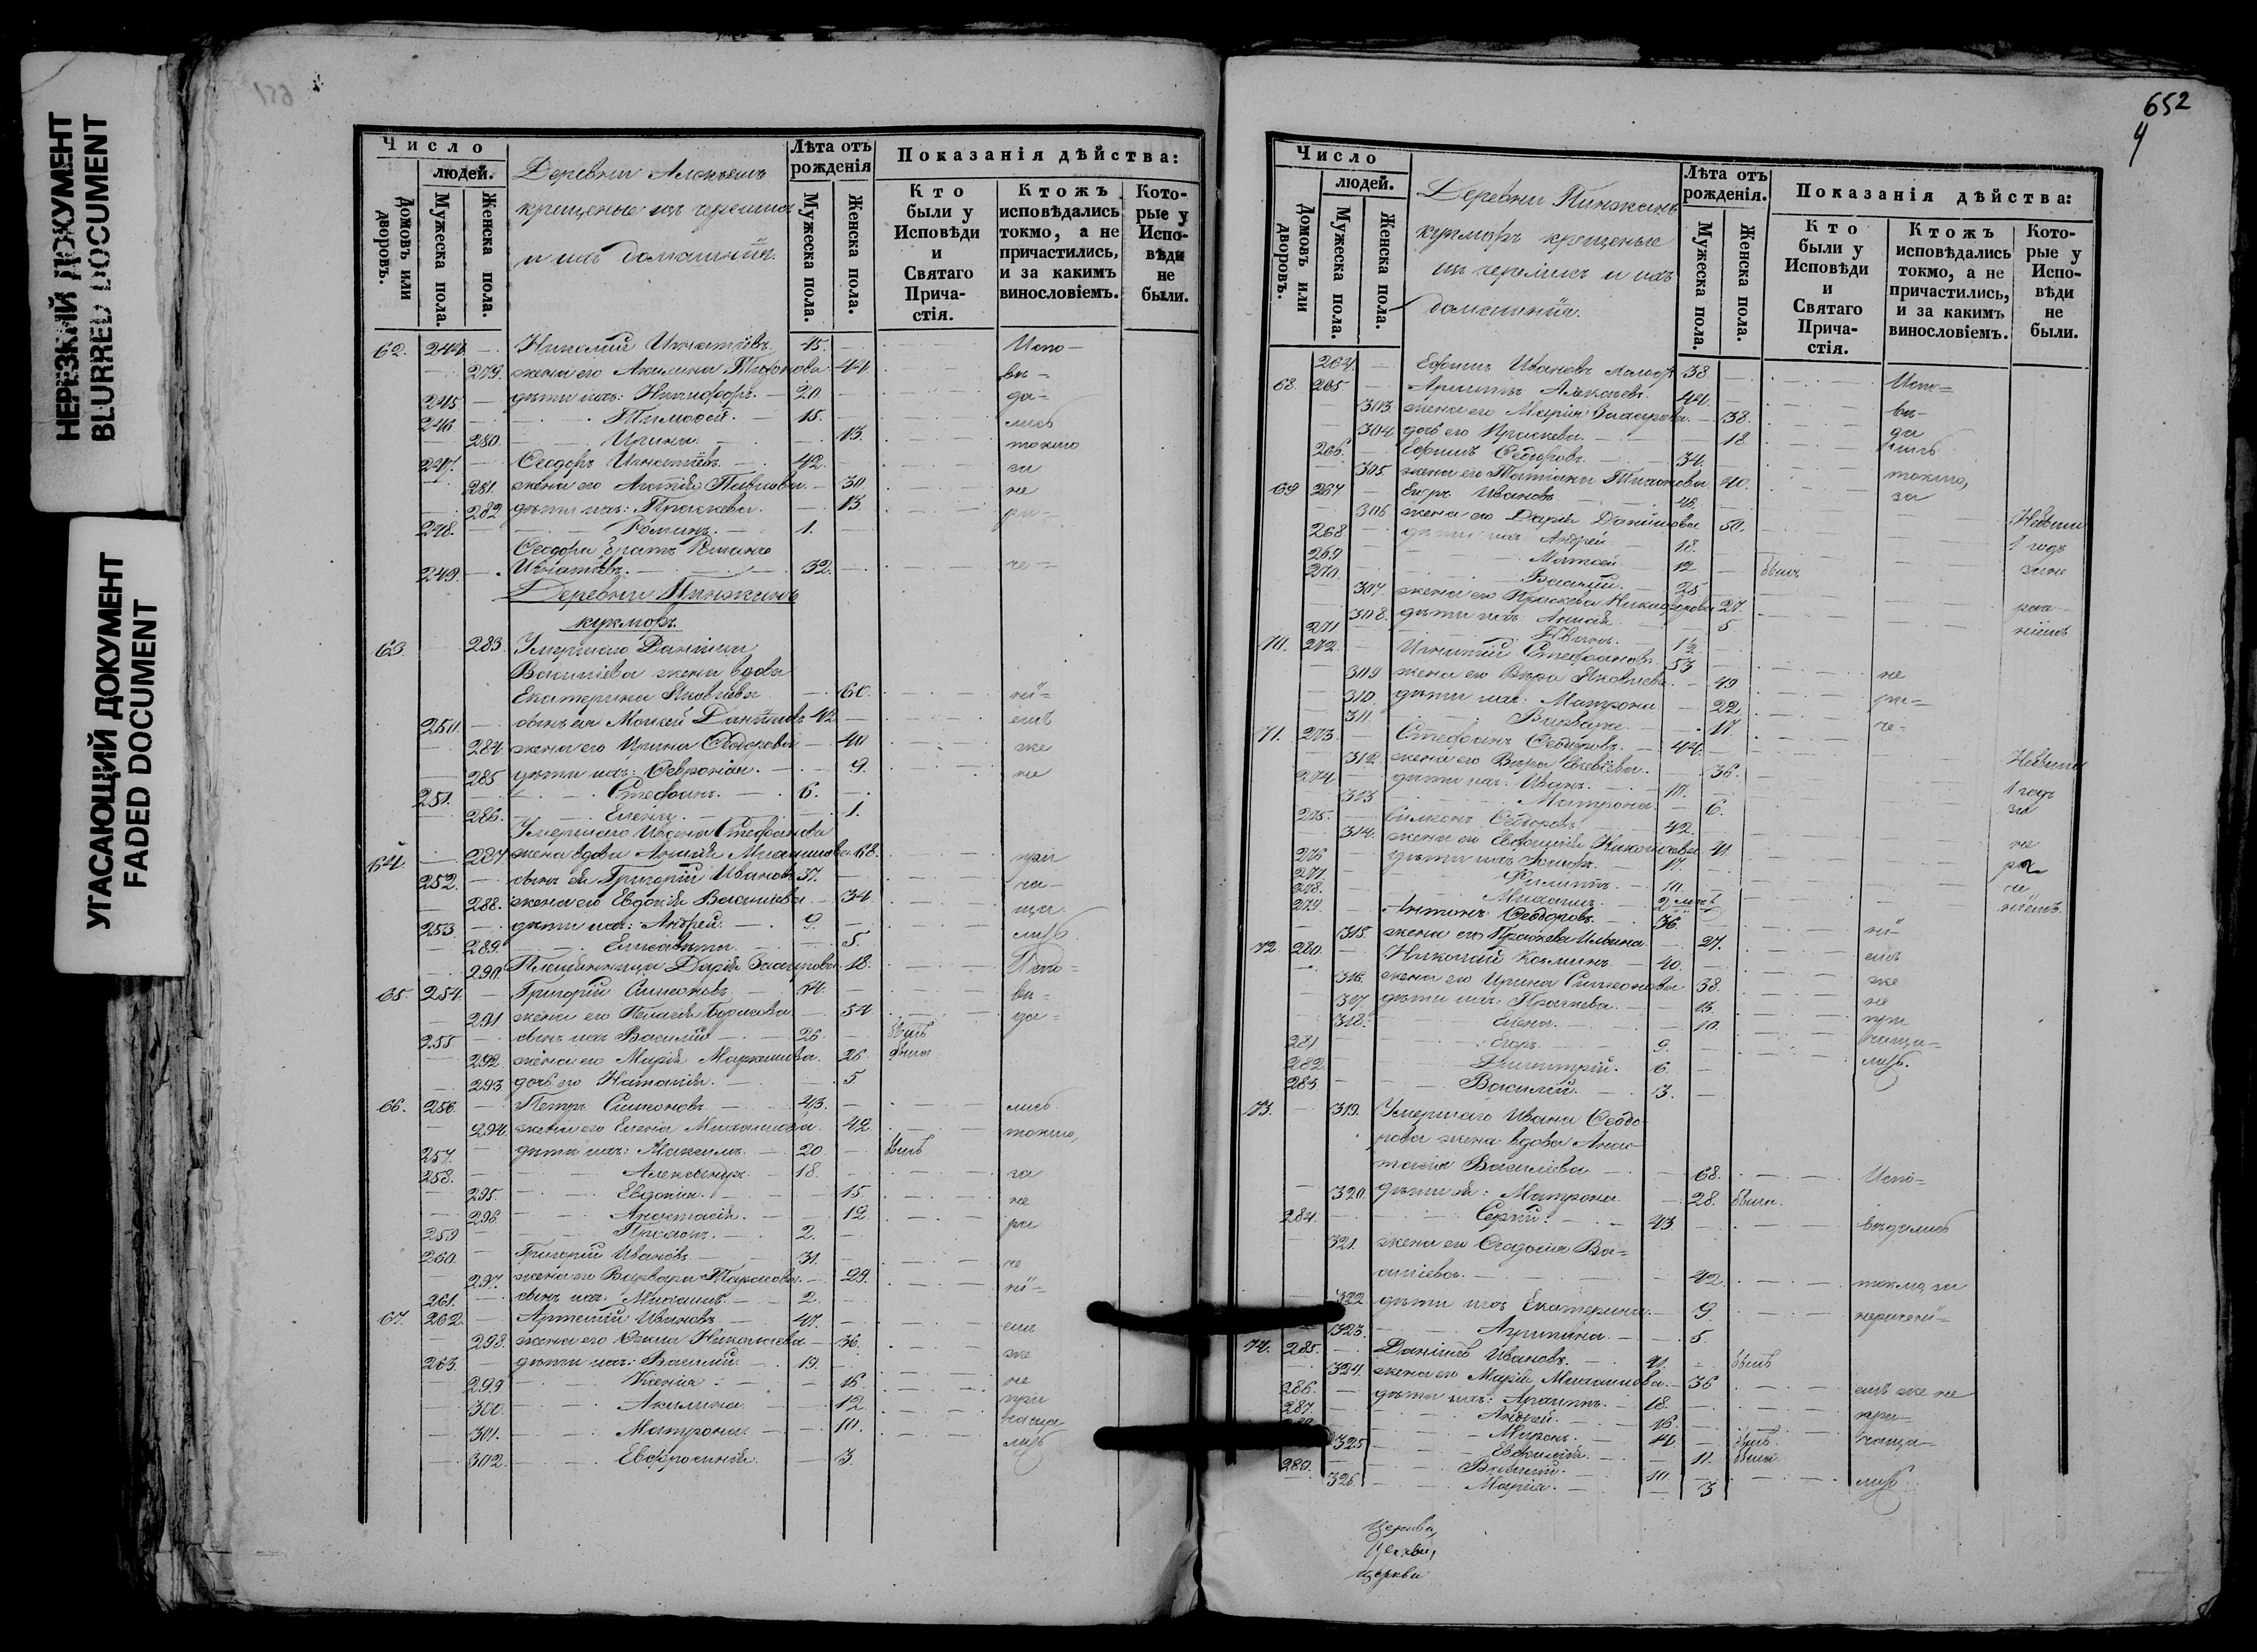 НЕРЕЗКИЙ ДОКУМЕНТ
BLURRED DOCUMENT
УГАСАЮЩИЙ ДОКУМЕНТ
FADED DOCUMENT
Число
людей.
Домовъ или дворовъ.
Мужеска пола.
Женска пола.
Деревни
крещеные изъ черемисъ
и ихъ домашнiи.
Лѣта отъ рожденія
Мужеска пола.
Женска пола.
Показанія дѣйства:
Кто были у Исповѣди и Святаго Причастія.
Ктожъ исповѣдались токмо, а не причастились, и за какимъ винословіемъ.
Которые у Исповѣди не были.
62. 244. Николай Игнатіевъ. 45. Испо-
279. жена его Акилина 44 вѣ-
245. дѣти ихъ: Никифоръ. 20 да-
246 Тимоѳей. 15. лись
280. Ирина. 13. токмо
247. Ѳеодоръ Игнатіевъ. 42. за
281. жена его Павлова 30 не
282 дѣти ихъ: Праскева. 13. ра-
248. Романъ. 1.
Ѳеодора братъ
249. Игнатіевъ. 32. че-
Деревни Пинжанъ
кукморъ.
63. 283. Умершаго Даніила
Василіева жена вдова
Екатерина Яковлева 60. ні-
250. сынъ ея Моисей Даніиловъ 42 емъ
284. жена его Ирина Ѳеодорова 40 же
285 дѣти ихъ: Ѳевронія. 9. не
251. Стефанъ. 6.
286. Елена. 1.
Умершаго Ивана Стефанова
64. 287 жена вдова 68. при
252. сынъ ея Григорій Ивановъ 37. ча-
288. жена его Евдокія Василіева 34 ща-
253. дѣти ихъ: Андрей. 9. лись
289. Елисавета. 5.
290 Племянница Дарія 18. Испо-
65. 254. Григорій Симеоновъ. вѣ-
291 жена его Пелагея Борисова 54 да-
255 сынъ ихъ Василій 26. былъ
292. жена его Марія 26 была
293 дочь его Наталія. 5
66. 256. Петръ Симеоновъ 43. лись
294. жена его Елена Михаилова. 42 токмо,
257. дѣти ихъ: Максимъ. 20 былъ
258. Александръ 18. за
295. Евдокія. 15. не
296. Анастасія. 12. ра
259 2.
260. Григорій Ивановъ. 31. че
297. жена его Варвара Тарасова 29. ні-
261. сынъ ихъ: Михаилъ. 2.
67. 262. Артемій Ивановъ 40. емъ
298. жена его Николаева 36. же
263. дѣти ихъ: Василій. 19.
299 Ксенія 16. не
300. Акилина. 12 при
301. Матрона. 10. чаща
302. Евфросинія. 3. лись
652
4
Число
людей.
Домовъ или дворовъ.
Мужеска пола.
Женска пола.
Деревни Пинжанъ
кукморъ крещеные
изъ черемисъ и ихъ
домашнiи.
Лѣта отъ рожденія.
Мужеска пола.
Женска пола.
Показанія дѣйства:
Кто были у Исповѣди и Святаго Причастія.
Ктожъ исповѣдались токмо, а не причастились, и за какимъ винословіемъ.
Которые у Исповѣди не были.
264. Ефимъ Ивановъ 38
68. 265 Алексѣевъ. 44. Испо-
303. жена его Марія 38. вѣ-
304 дочь его Праскева. 18 да
266. Ефимъ Ѳеодоровъ. 34. лись
305. жена его Татіана 40. токмо,
69 267 Егоръ Ивановъ 46. за
306 жена его Дарія Даніилова 50. Небыли
268 дѣти ихъ Андрей 18. 1 годъ
269 Матѳей. 12 за не
270. Василій. 25. былъ
307. жена его Праскева Никифорова 27. раче-
308. дѣти ихъ 5 ніемъ
271 Иванъ. 1½
70. 272. Игнатій Стефановъ 53
309 жена его Вѣра Яковлева 49 не
310. дѣти ихъ: Матрона 22 ра-
311. Варвара 17. че-
71. 273. Стефанъ Ѳеодоровъ. 44.
312. жена его Вѣра 36. Небыли
274. дѣти ихъ: Иванъ. 10. 1 годъ
313 Матрона. 6. за
275. Симеонъ Ѳеодоровъ 42.
314. жена его Николаева 41. не
276 дѣти ихъ 17. ра
277. Филиппъ. 10. че
278. Михаилъ. 2 ніемъ.
279 Антонъ Ѳеодоровъ. 36.
315. жена его Праскева Ильина 27. ні-
72. 280. Николай Козминъ. 40. емъ
316. жена его Ирина Симеонова 38. же
317 дѣти ихъ: Праскева. 13. не
318. Елена. 10. при
281. Егоръ. 9. чаща-
282. Димитрій. 6. лись.
283 Василій. 3.
73. 319. Умершаго Ивана Ѳеодо-
рова жена вдова Анас-
тасія Василіева 68. Испо-
320. дѣти ея: Матрона. 28. была.
284. Сергій. 43. вѣдались
321. жена его Ѳеодосія Ва-
силіева. 42. токмо, за
322 дѣти ихъ Екатерина. 9. нерачені-
323. Агрипина. 5.
74. 285. Даніилъ Ивановъ. 41. былъ
324. жена его Марія Михаилова. 36 емъ же не
286. дѣти ихъ: 18. при-
287. Андрей. 16.
288. Миронъ. былъ. чаща-
325 11. была
289. Василій. 10.
326. Марія. 3 лись
Церкви,
Церкви,
церкви